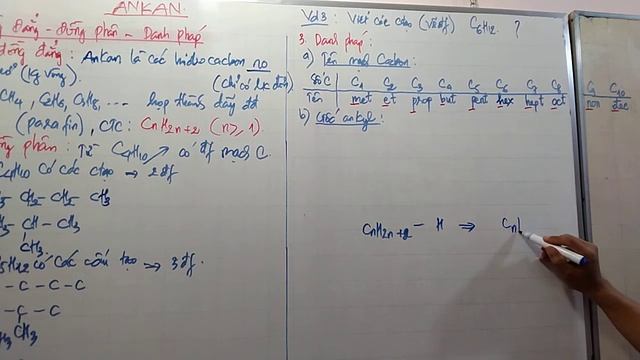 ANKAN
đẳng - Đồng phân - Danh pháp
đồng đẳng: Ankan là các hiđrocacbon no
(kg vòng). (chỉ có lk đơn)
CH4, C2H6, C3H8, ... hợp thành dãy đđ
(parafin), CTC: CnH2n+2 (n ≥ 1).
phân: Từ C4H10 ↗ có đf mạch C.
C4H10 có các ctạo → 2 đf
- CH2 - CH2 - CH3
- CH - CH3
CH3
C5H12 có các cấu tạo → 3 đf.
- C - C - C - C
- C - C
CH3
Vd3: Viết các ctạo C6H12 ?
3. Danh pháp:
a) Tên mạch Cacbon:
Số C | C1 C2 C3 C4 C5 C6 C7 C8 C9 C10
Tên | met et prop but pent hex hept oct non đec
b) Gốc ankyl:
CnH2n+2 - H ⇒ Cn